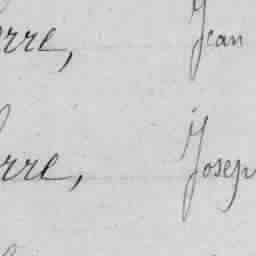 erre, Jean
erre, Josep